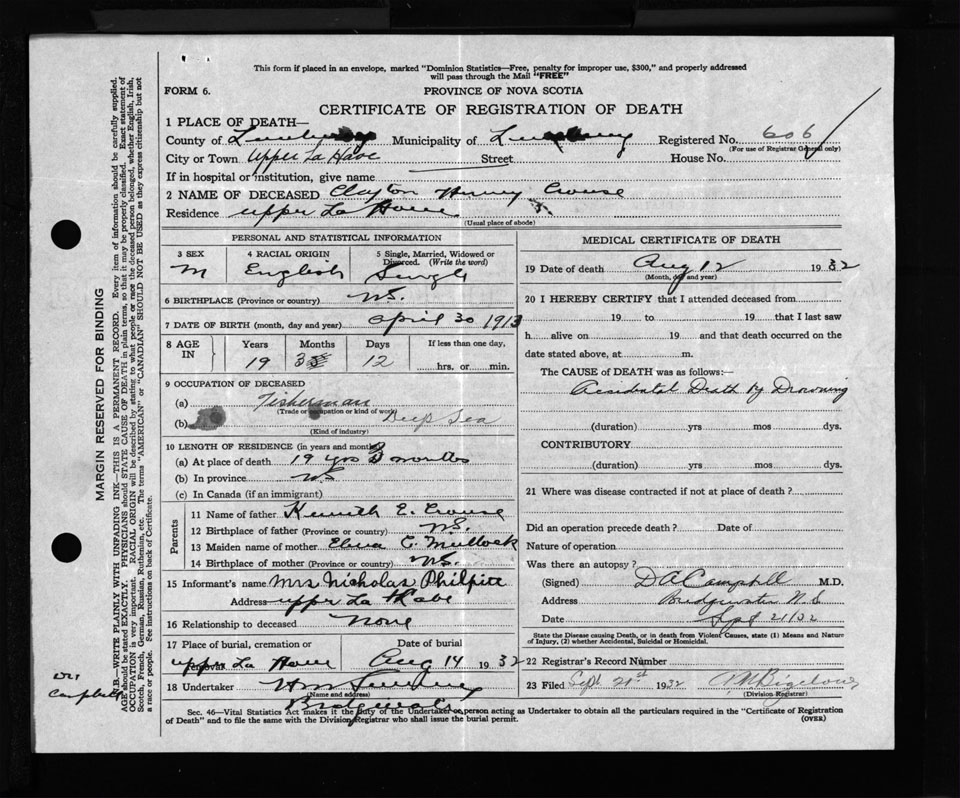 This form if placed in an envelope, marked "Dominion Statistics—Free, penalty for improper use, $300," and properly addressed
will pass through the Mail "FREE"
FORM 6.
PROVINCE OF NOVA SCOTIA
CERTIFICATE OF REGISTRATION OF DEATH
1 PLACE OF DEATH—
County of Municipality of Registered No. 606
(For use of Registrar General only)
City or Town Upper La Have Street House No.
If in hospital or institution, give name
2 NAME OF DECEASED Clayton Henry Crouse
Residence upper La Have
(Usual place of abode)
PERSONAL AND STATISTICAL INFORMATION
3 SEX 4 RACIAL ORIGIN 5 Single, Married, Widowed or Divorced. (Write the word)
M English Single
6 BIRTHPLACE (Province or country) NS.
7 DATE OF BIRTH (month, day and year) april 30 1913
8 AGE IN Years Months Days If less than one day,
19 3 12 hrs. or min.
9 OCCUPATION OF DECEASED
(a) Fisherman
(Trade or occupation or kind of work)
(b) Deep Sea
(Kind of industry)
10 LENGTH OF RESIDENCE (in years and months)
(a) At place of death 19 yrs 3 months
(b) In province NS
(c) In Canada (if an immigrant)
Parents
11 Name of father Kenneth E. Crouse
12 Birthplace of father (Province or country) NS.
13 Maiden name of mother C. Mullock
14 Birthplace of mother (Province or country) NS.
15 Informant's name Mrs Nicholas Philpitt
Address upper La Have
16 Relationship to deceased None
17 Place of burial, cremation or Date of burial
upper La Have Aug 14 1932
18 Undertaker Wm
(Name and address)
Bridgewater
MEDICAL CERTIFICATE OF DEATH
19 Date of death Aug 12 1932
(Month, day and year)
20 I HEREBY CERTIFY that I attended deceased from
19 to 19 that I last saw
h alive on 19 and that death occurred on the
date stated above, at m.
The CAUSE of DEATH was as follows:—
Accidental Death by Drowning
(duration) yrs mos dys.
CONTRIBUTORY
(duration) yrs mos dys.
21 Where was disease contracted if not at place of death?
Did an operation precede death? Date of
Nature of operation
Was there an autopsy?
(Signed) DA Campbell M.D.
Address Bridgewater N.S
Date Sept 21/32
State the Disease causing Death, or in death from Violent Causes, state (1) Means and Nature
of Injury, (2) whether Accidental, Suicidal or Homicidal.
22 Registrar's Record Number
23 Filed Sept 21st 1932 Bigelow
(Division Registrar)
Sec. 46—Vital Statistics Act makes it the duty of the Undertaker or person acting as Undertaker to obtain all the particulars required in the "Certificate of Registration
of Death" and to file the same with the Division Registrar who shall issue the burial permit. (OVER)
MARGIN RESERVED FOR BINDING
N.B.—WRITE PLAINLY WITH UNFADING INK—THIS IS A PERMANENT RECORD. Every item of information should be carefully supplied.
AGE should be stated EXACTLY. PHYSICIANS should STATE CAUSE OF DEATH in plain terms, so that it may be properly classified. Exact statement of
OCCUPATION is very important. RACIAL ORIGIN will be described by stating to what people or race the deceased person belonged, whether English, Irish,
Scotch, French, German, Russian, Ruthenian, etc. The terms "AMERICAN" or "CANADIAN" SHOULD NOT BE USED as they express citizenship but not
a race or people. See instructions on back of Certificate.
Dr
Campbell